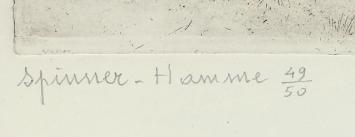 Spinner - Hamme 49/50